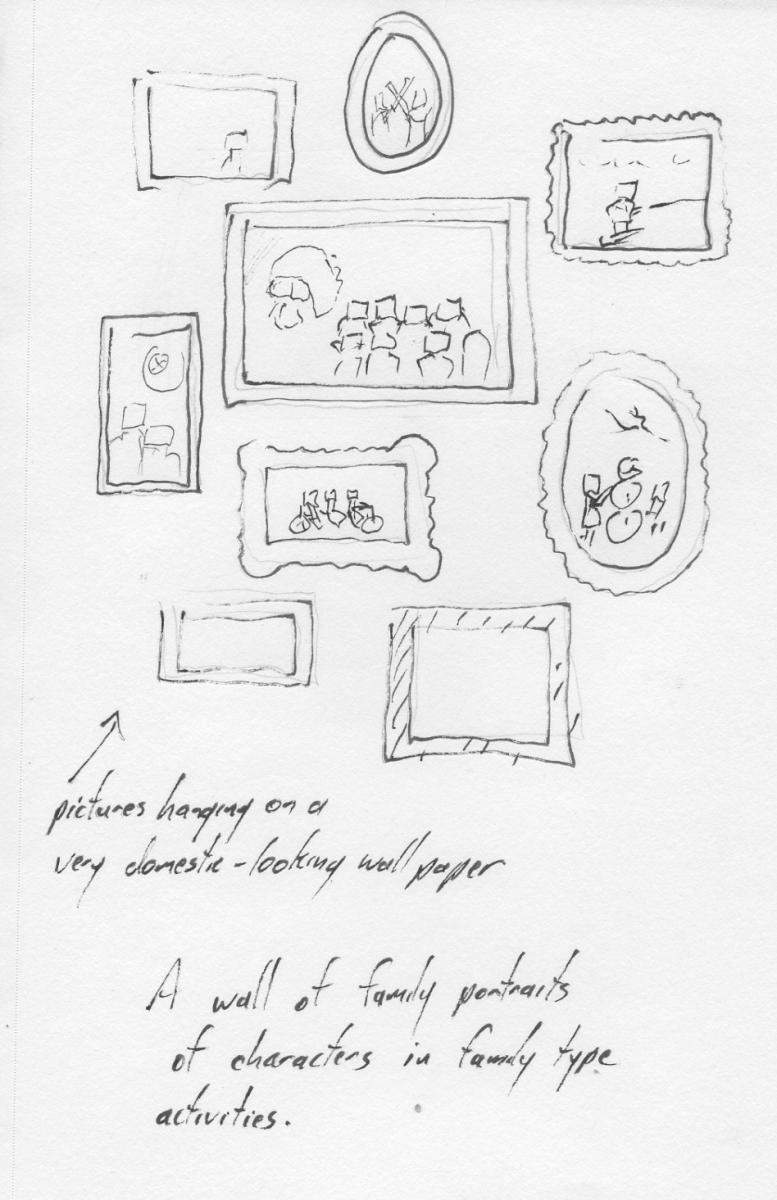 pictures hanging on a
very domestic-looking wall paper
A wall of family portraits
of characters in family type
activities.